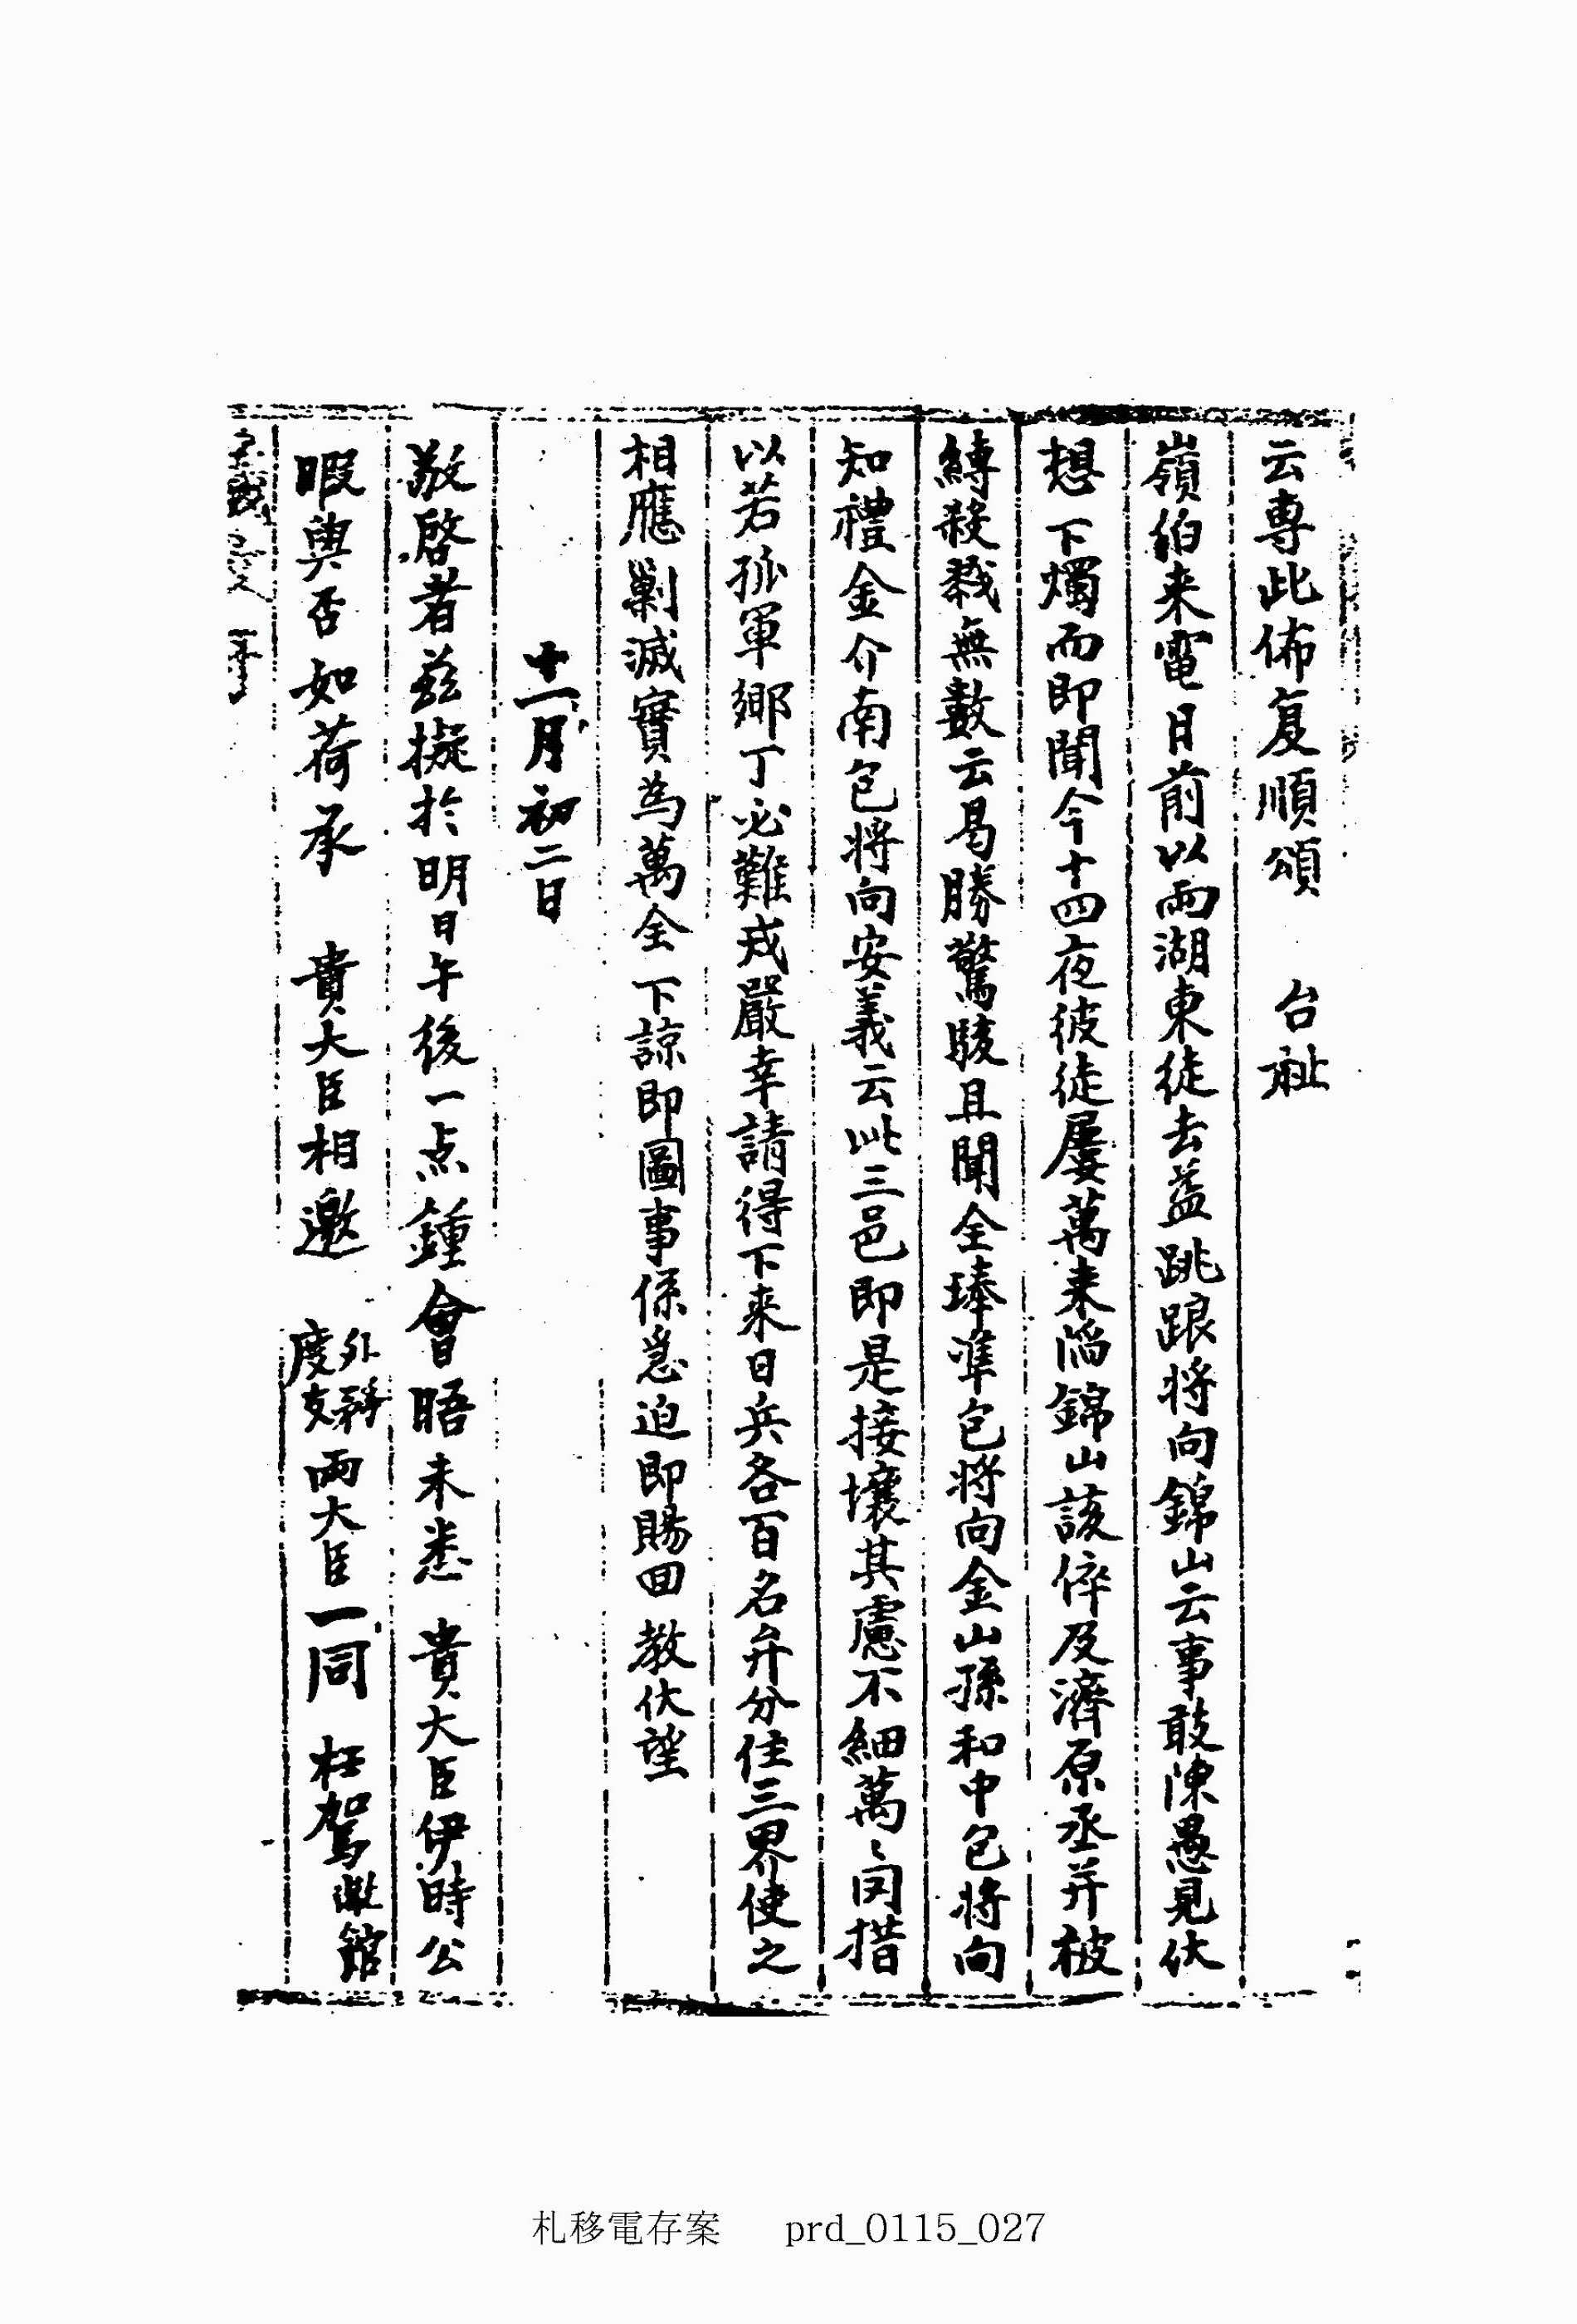 云專此佈复順頌 台祉
嶺伯来電日前以兩湖東徒去益跳踉将向錦山云事敢陳愚見伏
想 下燭而即聞今十四夜彼徒屢萬来陷錦山該倅及濟原丞并被
縳殺戮無數云曷勝驚駭且聞全琫準包将向金山孫和中包将向
知禮金介南包将向安義云此三邑即是接壤其慮不細萬〻悶措
以若孤軍鄉丁必難戎嚴幸請得下来日兵各百名弁分住三界使之
相應剿滅實為萬全 下諒即圖事係急迫即賜回 教伏望
十一月初二日
敬啓者茲擬於明日午後一点鍾會晤未悉 貴大臣伊時公
暇與否如荷承 貴大臣相邀 外務度支兩大臣一同 枉駕敝館